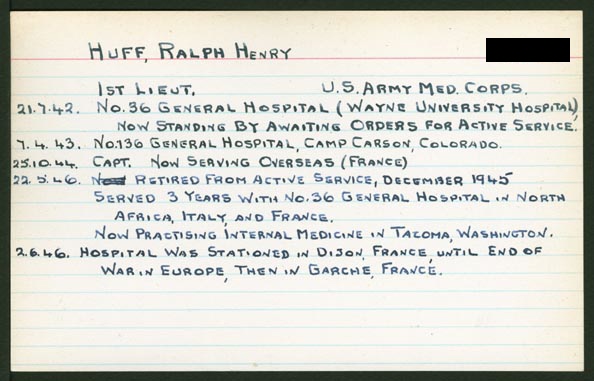 HUFF, RALPH HENRY
1ST LIEUT. U.S. ARMY MED. CORPS.
21.7.42. NO.36 GENERAL HOSPITAL (WAYNE UNIVERSITY HOSPITAL)
NOW STANDING BY AWAITING ORDERS FOR ACTIVE SERVICE.
7.4.43. NO.136 GENERAL HOSPITAL, CAMP CARSON, COLORADO.
25.10.44. CAPT. NOW SERVING OVERSEAS (FRANCE)
22.5.46. RETIRED FROM ACTIVE SERVICE, DECEMBER 1945
SERVED 3 YEARS WITH NO.36 GENERAL HOSPITAL IN NORTH
AFRICA, ITALY, AND FRANCE.
NOW PRACTISING INTERNAL MEDICINE IN TACOMA, WASHINGTON.
2.6.46. HOSPITAL WAS STATIONED IN DIJON, FRANCE, UNTIL END OF
WAR IN EUROPE, THEN IN GARCHE, FRANCE.